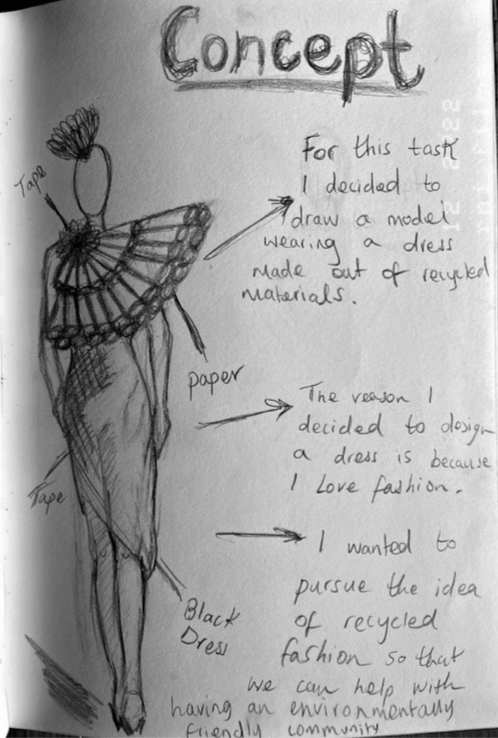 Concept
Tape
For this task
I decided to
draw a model
wearing a dress
made out of recycled
materials.
paper
The reason I
decided to design
a dress is because
I Love fashion.
Tape
I wanted to
pursue the idea
of recycled
fashion so that
we can help with
having an environmentally
friendly community
Black
Dress